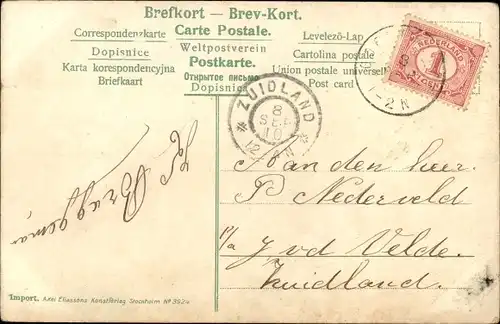 Brefkort — Brev-Kort.
Correspondenzkarte Carte Postale. Levelező-Lap
Dopisnice Weltpostverein Cartolina postale
Karta korespondencyjna Postkarte. Union postale universelle
Briefkaart Открытое письмо Post card
Dopisnica
NEDERLAND
1
CENT
1-2N
ZUIDLAND
8
SEP
10
12 N
Aan den heer.
P Nederveld
p/a J vd Velde.
Zuidland.
Bruggeman
Import. Axel Eliassons Konstförlag Stockholm Nº 392